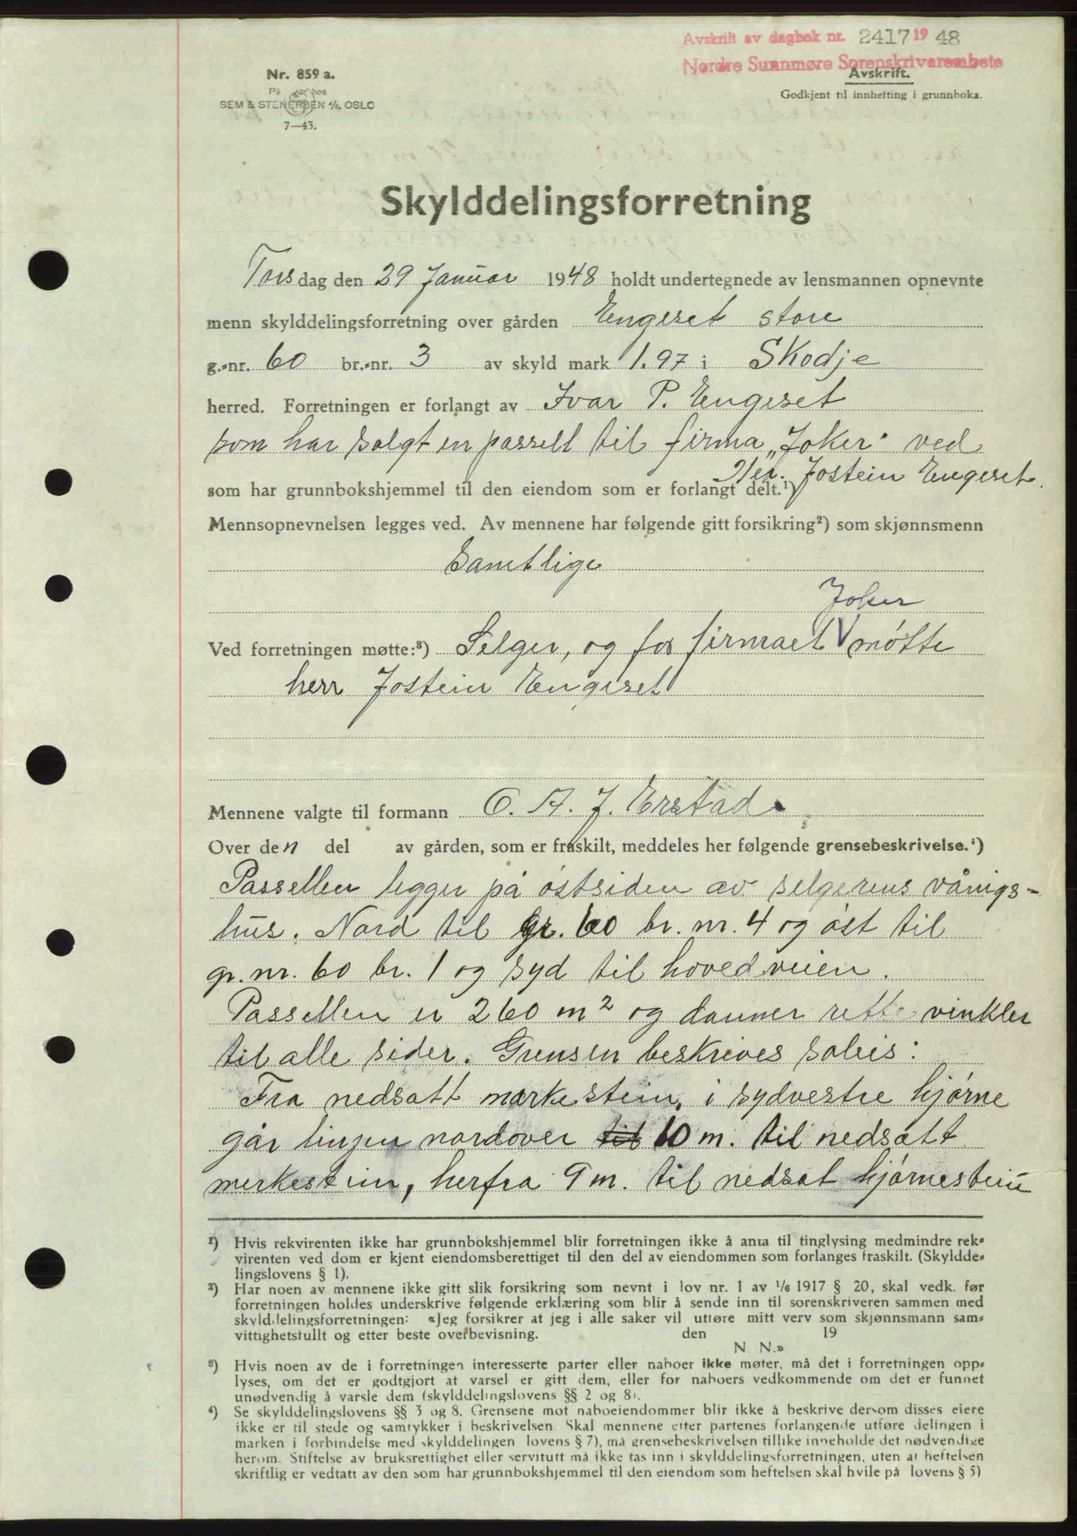 Avskrift av dagbok nr. 2417 1948
Nordre Sunnmøre Sorenskrivarembete
Avskrift.
Godkjent til innhefting i grunnboka.
Nr. 859 a.
På hos
SEM & STENERSEN A/S, OSLO
7—43.
Skylddelingsforretning
Torsdag den 29 Januar 1948 holdt undertegnede av lensmannen opnevnte
menn skylddelingsforretning over gården Engeset store
g.-nr. 60 br.-nr. 3 av skyld mark 1.97 i Skodje
herred. Forretningen er forlangt av Ivar P. Engeset
som har solgt en passell til firma „Joker" ved
Jostein Engeset.
som har grunnbokshjemmel til den eiendom som er forlangt delt.¹)
Mennsopnevnelsen legges ved. Av mennene har følgende gitt forsikring²) som skjønnsmenn
Samtlige
Joker
Ved forretningen møtte:³) Selger, og for firmaet V møtte
herr Jostein Engeset
Mennene valgte til formann O. A. J. Erstad.
Over den del av gården, som er fraskilt, meddeles her følgende grensebeskrivelse.⁴)
Passellen legger på østsiden av selgerens vånigs-
hus. Nord til gr. 60 br. nr. 4 og øst til
gr. nr. 60 br. 1 og syd til hovedveien.
Passellen er 260 m² og danner rette vinkler
til alle sider. Grensen beskrives soleis:
Fra nedsatt merkestein, i sydvestre hjørne
går linjen nordover til 10 m. til nedsatt
merkestein, herfra 9 m. til nedsat hjørnestein
¹) Hvis rekvirenten ikke har grunnbokshjemmel blir forretningen ikke å anta til tinglysing medmindre rek-
virenten ved dom er kjent eiendomsberettiget til den del av eiendommen som forlanges fraskilt. (Skyldde-
lingslovens § 1).
²) Har noen av mennene ikke gitt slik forsikring som nevnt i lov nr. 1 av 1/6 1917 § 20, skal vedk. før
forretningen holdes underskrive følgende erklæring som blir å sende inn til sorenskriveren sammen med
skylddelingsforretningen: «Jeg forsikrer at jeg i alle saker vil utføre mitt verv som skjønnsmann sam-
vittighetsfullt og etter beste overbevisning. den 19
N. N.»
³) Hvis noen av de i forretningen interesserte parter eller naboer ikke møter, må det i forretningen opp-
lyses, om det er godtgjort at varsel er gitt dem, eller for naboers vedkommende om det er funnet
unødvendig å varsle dem (skylddelingslovens §§ 2 og 8).
⁴) Se skylddelingslovens §§ 3 og 8. Grensene mot naboeiendommer blir ikke å beskrive dersom disses eiere
ikke er til stede og samtykker i beskrivelsen. Skal mennene etter partenes forlangende utføre delingen i
marken i forbindelse med skylddelingen lovens § 7), må grensebeskrivelsen tillike inneholde det nødvendige
herom. Stiftelse av bruksrettighet eller servitutt må ikke tas inn i skylddelingsforretningen, uten at heftelsen
skriftlig er vedtatt av den som har grunnbokshjemmel til den eiendom som heftelsen skal hvile på lovens § 5)